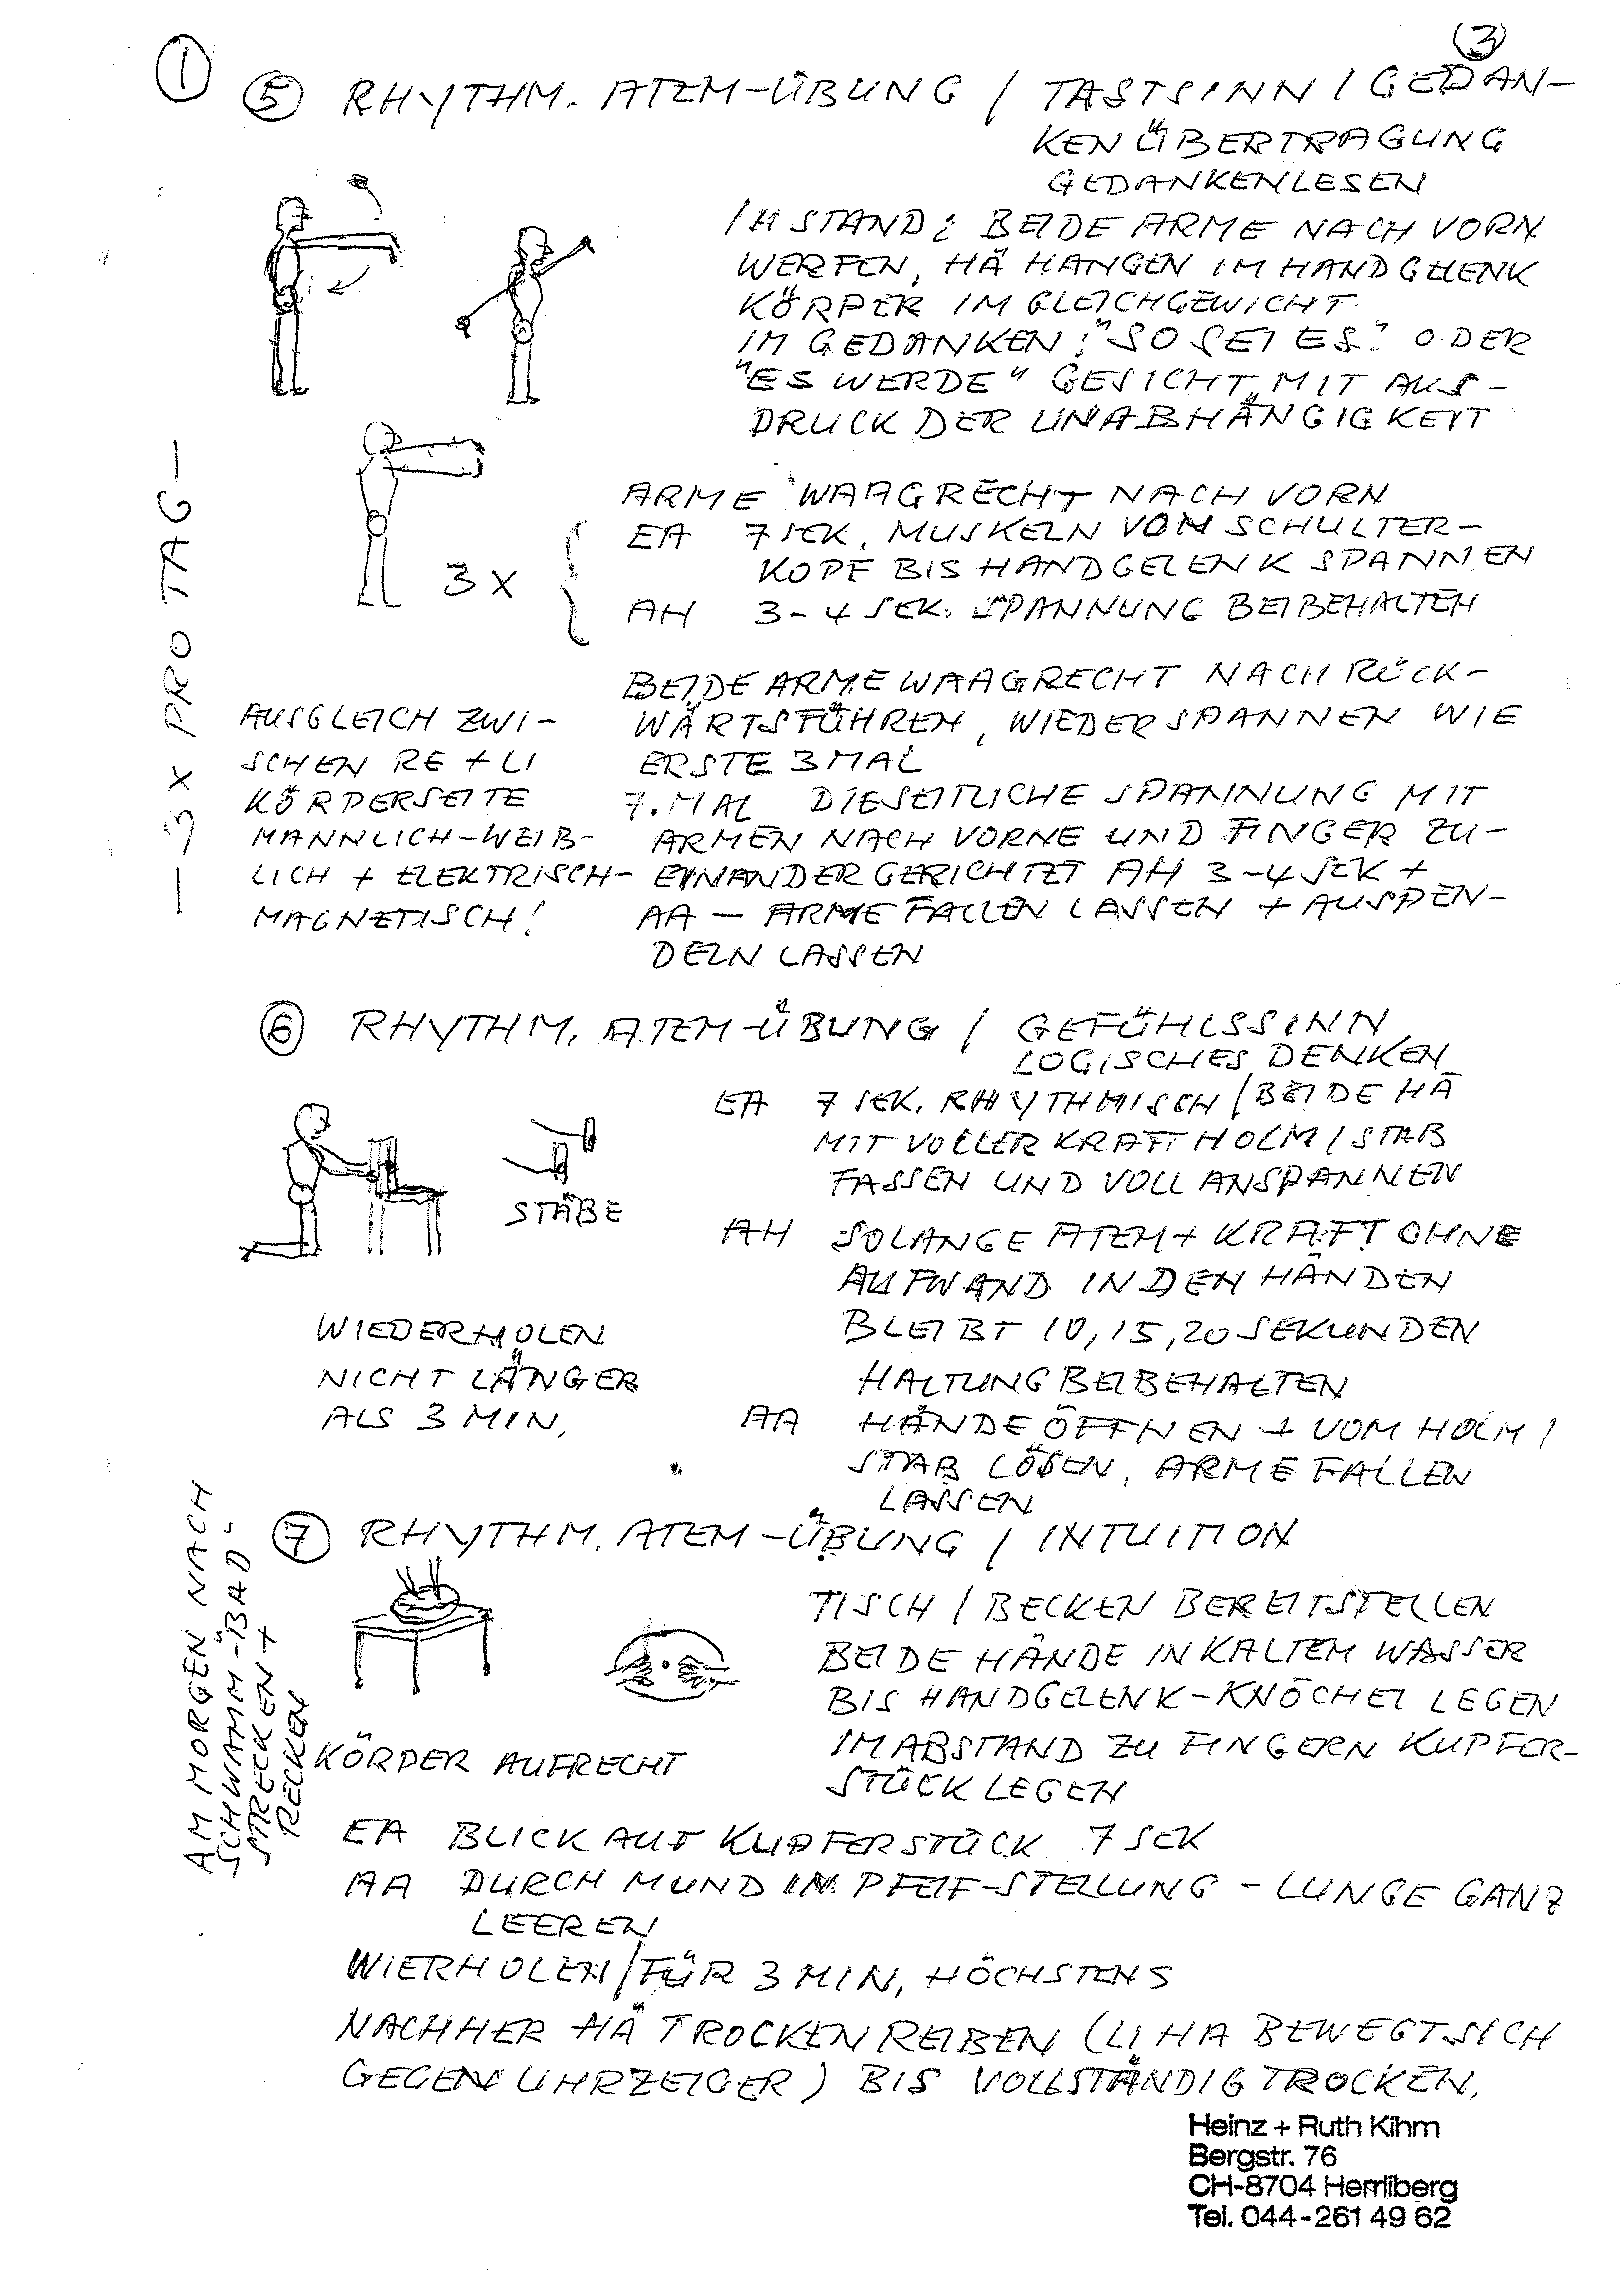 1
3
5 RHYTHM. ATEM-ÜBUNG / TASTSINN / GEDAN-
KENÜBERTRAGUNG
GEDANKENLESEN
IM STAND: BEIDE ARME NACH VORN
WERFEN, HÄ HANGEN IM HANDGELENK
KÖRPER IM GLEICHGEWICHT
IM GEDANKEN: "SO SEI ES" ODER
"ES WERDE" GESICHT MIT AUS-
DRUCK DER UNABHÄNGIGKEIT
ARME WAAGRECHT NACH VORN
EA 7 SEK. MUSKELN VOM SCHULTER-
KOPF BIS HANDGELENK SPANNEN
3 X
AH 3-4 SEK. SPANNUNG BEIBEHALTEN
— 3 x PRO TAG —
BEIDE ARME WAAGRECHT NACH RÜCK-
WÄRTSFÜHREN, WIEDER SPANNEN WIE
ERSTE 3 MAL
7. MAL DIESEITLICHE SPANNUNG MIT
ARMEN NACH VORNE UND FINGER ZU-
EINANDER GERICHTET AH 3-4 SEK +
AA — ARME FALLEN LASSEN + AUSPEN-
DELN LASSEN
AUSGLEICH ZWI-
SCHEN RE + LI
KÖRPERSEITE
MANNLICH-WEIB-
LICH + ELEKTRISCH-
MAGNETISCH!
6 RHYTHM. ATEM-ÜBUNG / GEFÜHLSSINN
LOGISCHES DENKEN
EA 7 SEK. RHYTHMISCH / BEIDE HÄ
MIT VOLLER KRAFT HOLM / STAB
FASSEN UND VOLL ANSPANNEN
STÄBE
AH SOLANGE ATEM + KRAFT OHNE
AUFWAND IN DEN HÄNDEN
BLEIBT 10, 15, 20 SEKUNDEN
HALTUNG BEIBEHALTEN
WIEDERHOLEN
NICHT LÄNGER
ALS 3 MIN.
AA HÄNDE ÖFFNEN + VOM HOLM /
STAB LÖSEN, ARME FALLEN
LASSEN
7 RHYTHM. ATEM-ÜBUNG / INTUITION
AM MORGEN NACH
SCHWAMM-BAD.
STRECKEN +
RECKEN
TISCH / BECKEN BEREITSTELLEN
BEIDE HÄNDE IN KALTEM WASSER
BIS HANDGELENK-KNÖCHEL LEGEN
IM ABSTAND ZU FINGERN KUPFER-
STÜCK LEGEN
KÖRPER AUFRECHT
EA BLICK AUF KUPFERSTÜCK 7 SEK
AA DURCH MUND IN PFEIF-STELLUNG - LUNGE GANZ
LEEREN
WIERHOLEN / FÜR 3 MIN, HÖCHSTENS
NACHHER HÄ TROCKENREIBEN (LI HA BEWEGT SICH
GEGEN UHRZEIGER) BIS VOLLSTÄNDIG TROCKEN.
Heinz + Ruth Kihm
Bergstr. 76
CH-8704 Herrliberg
Tel. 044-261 49 62